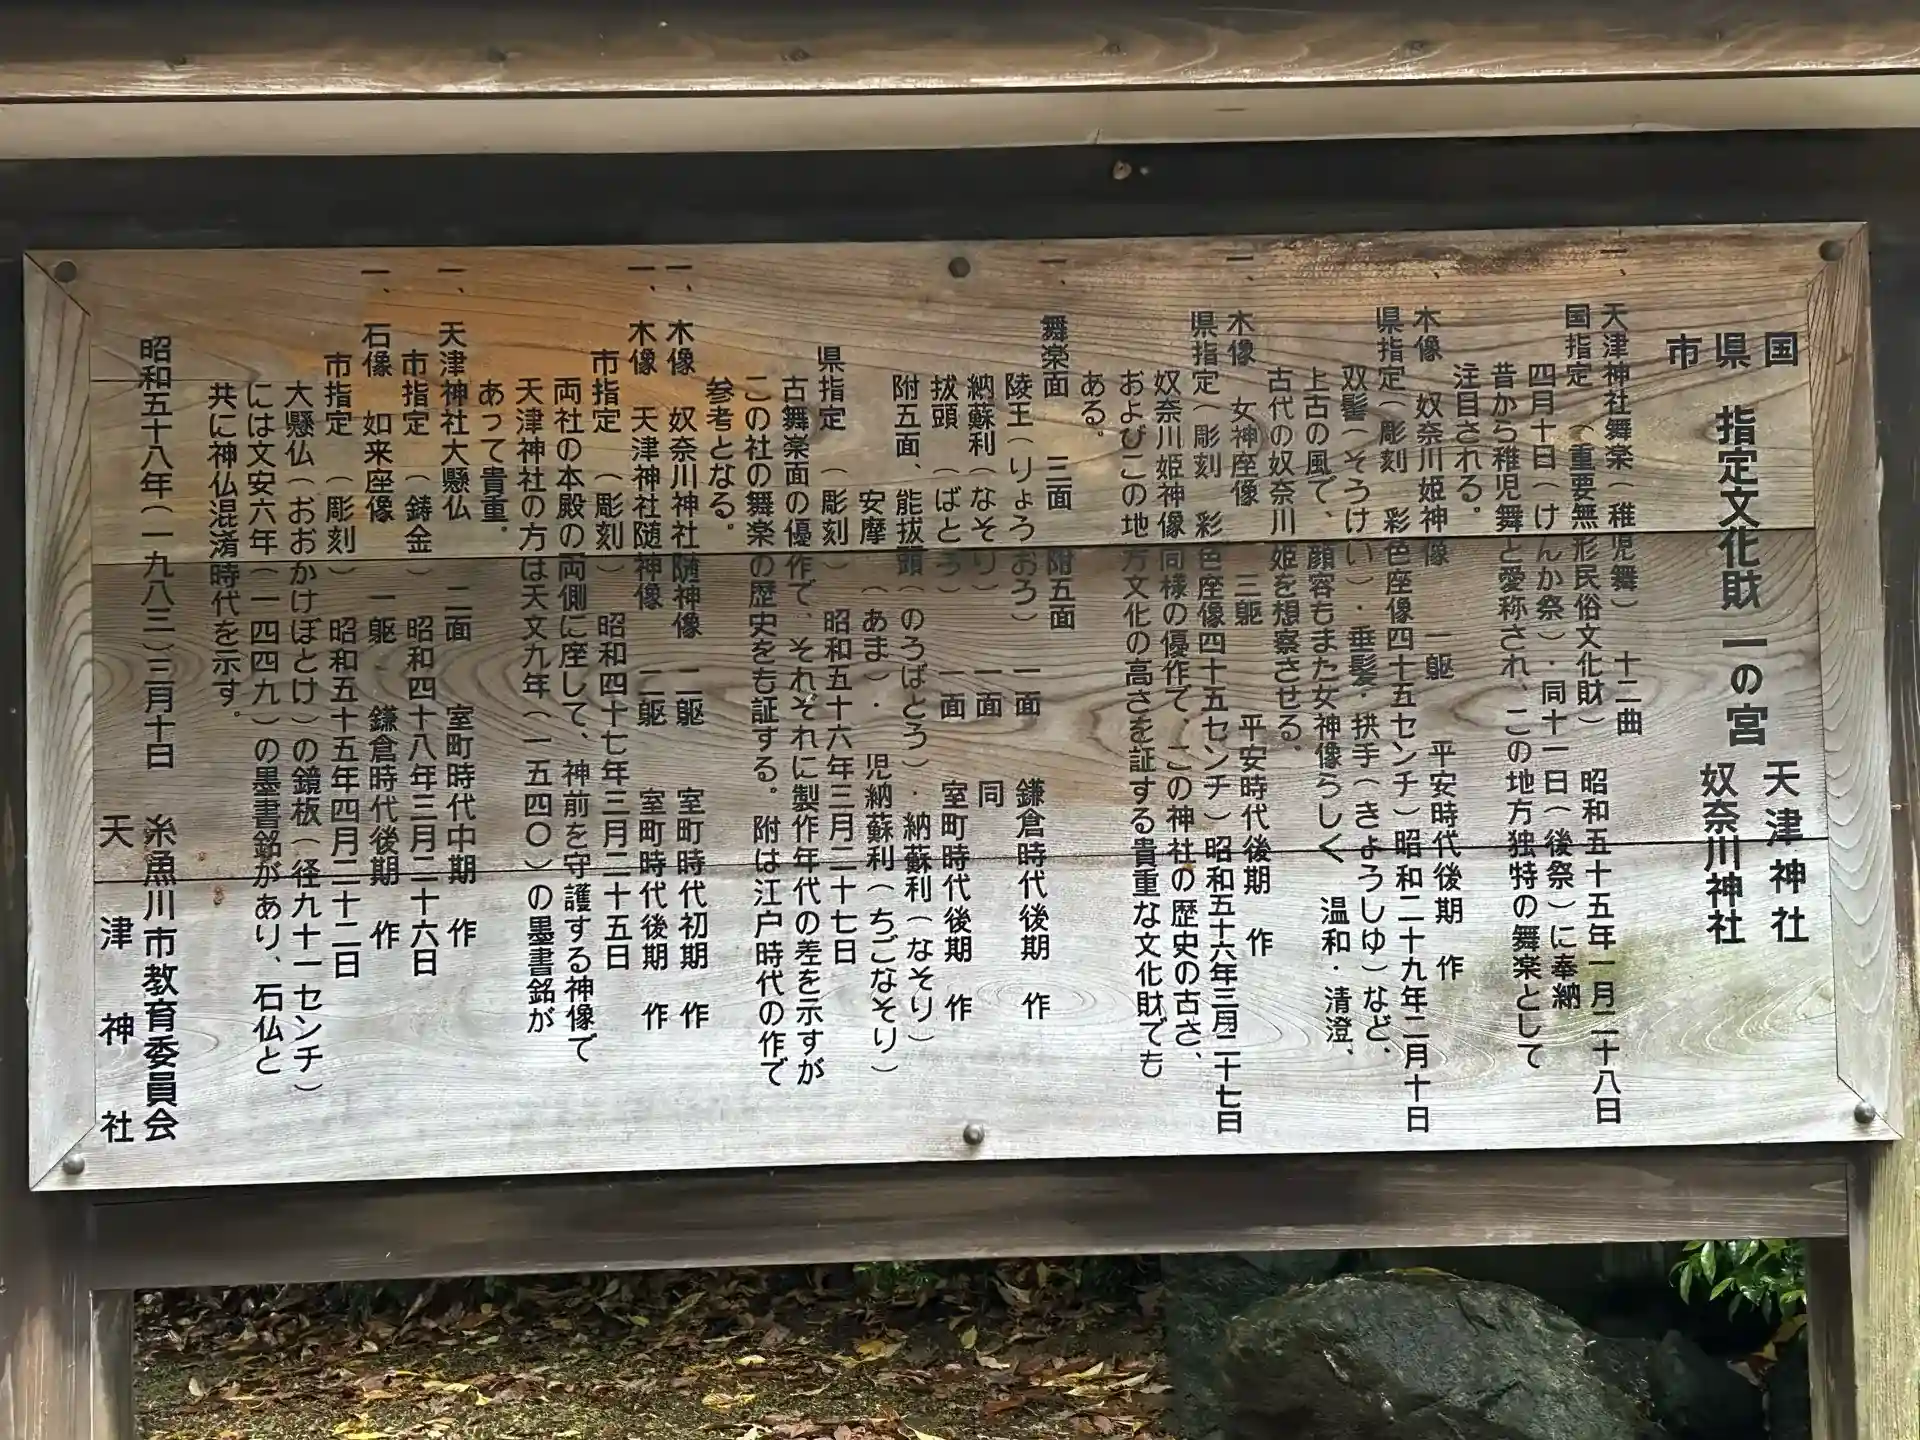 国
県　指定文化財　一の宮　天津神社
市　奴奈川神社
一、天津神社舞楽（稚児舞）　十二曲
国指定（重要無形民俗文化財）　昭和五十五年一月二十八日
四月十日（けんか祭）・同十一日（後祭）に奉納
昔から稚児舞と愛称され、この地方独特の舞楽として
注目される。
一、木像　奴奈川姫神像　一躯　平安時代後期　作
県指定（彫刻　彩色座像四十五センチ）昭和二十九年二月十日
双髻（そうけい）・垂髪・拱手（きょうしゆ）など、
上古の風で、顔容もまた女神像らしく　温和・清澄、
古代の奴奈川姫を想察させる。
一、木像　女神座像　三躯　平安時代後期　作
県指定（彫刻　彩色座像四十五センチ）昭和五十六年三月二十七日
奴奈川姫神像同様の優作て、この神社の歴史の古さ、
およびこの地方文化の高さを証する貴重な文化財でも
ある。
一、舞楽面　三面　附五面
陵王（りょうおう）　一面　鎌倉時代後期　作
納蘇利（なそり）　一面　同
抜頭　（ばとう）　一面　室町時代後期　作
附五面、能抜頭（のうばとう）・納蘇利（なそり）
安摩　（あま）・　児納蘇利（ちごなそり）
県指定　（彫刻）　昭和五十六年三月二十七日
古舞楽面の優作で、それぞれに製作年代の差を示すが
この社の舞楽の歴史をも証する。附は江戸時代の作で
参考となる。
一、木像　奴奈川神社随神像　二躯　室町時代初期　作
一、木像　天津神社随神像　二躯　室町時代後期　作
市指定　（彫刻）　昭和四十七年三月二十五日
両社の本殿の両側に座して、神前を守護する神像で
天津神社の方は天文九年（一五四〇）の墨書銘が
あって貴重。
一、天津神社大懸仏　二面　室町時代中期　作
市指定　（鋳金）　昭和四十八年三月二十六日
一、石像　如来座像　一躯　鎌倉時代後期　作
市指定　（彫刻）　昭和五十五年四月二十二日
大懸仏（おおかけぼとけ）の鏡板（径九十一センチ）
には文安六年（一四四九）の墨書銘があり、石仏と
共に神仏混淆時代を示す。
昭和五十八年（一九八三）三月十日　糸魚川市教育委員会
天津神社